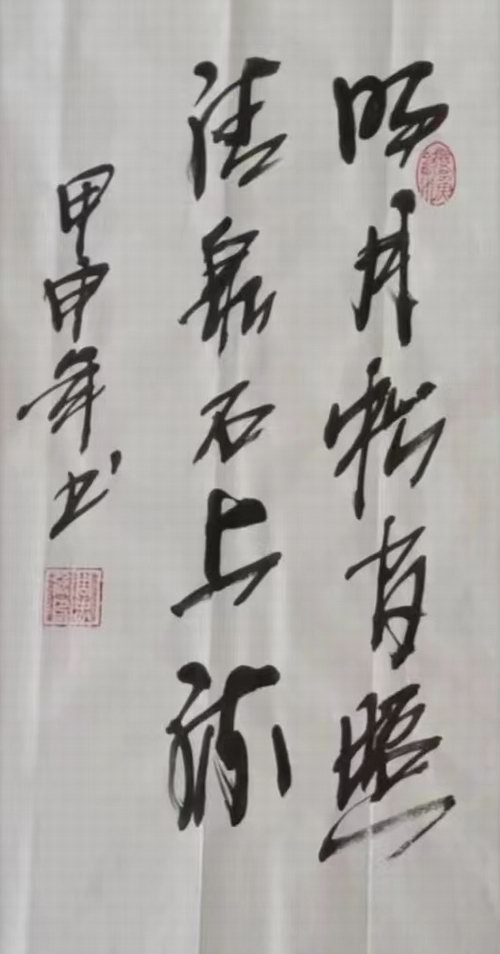 明月松间照
清泉石上流
甲申年书